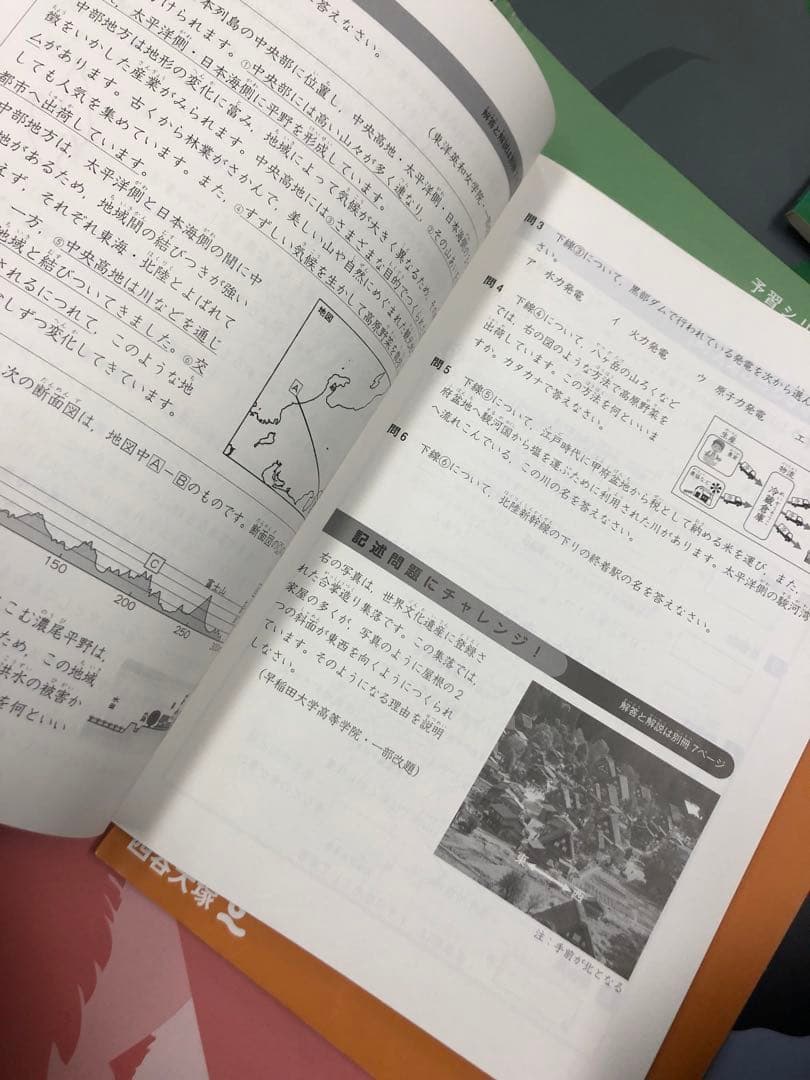 答えなさい。
本列島の中央部に位置し，中央高地・太平洋側・日本海側の
けられます。①中央部には高い山々が多く連なり，②その山々
し，太平洋側・日本海側に平野を形成しています。
中部地方は地形の変化に富み，地域によって気候が大きく異なるため，
徴をいかした産業がみられます。中央高地には③さまざまな目的でつくられ
ムがあります。古くから林業がさかんで，美しい山や自然にめぐまれた
しても人気を集めています。また，④すずしい気候を生かして高原野菜を
都市へ出荷しています。
中部地方は，太平洋側と日本海側の間に中
地があるため，地域間の結びつきが強い
えず，それぞれ東海・北陸とよばれて
一方，⑤中央高地は川などを通じ
地域と結びついてきました。⑥交
されるにつれて，このような地
しずつ変化してきています。
(東洋英和女学院・一部
解答と解説は別冊
地図
A
次の断面図は，地図中A－Bのものです。
断面図の
C
富士山
150
200
250
300
こむ濃尾平野は，
ため，この地域
洪水の被害か
を何といい
水田
問3 下線③について，黒部ダムで行われている発電を次から選ん
さい。
ア 水力発電 イ 火力発電 ウ 原子力発電 エ
問4 下線④について，八ヶ岳の山ろくなど
では，右の図のような方法で高原野菜を
出荷しています。この方法を何といいま
すか。カタカナで答えなさい。
生産
物流
冷蔵倉庫
問5 下線⑤について，江戸時代に甲府盆地から税として納める米を運び，また，
府盆地へ駿河国から塩を運ぶために利用された川があります。太平洋側の駿河湾
へ流れこんでいる，この川の名を答えなさい。
問6 下線⑥について，北陸新幹線の下りの終着駅の名を答えなさい。
記述問題にチャレンジ！
解答と解説は別冊7ページ
右の写真は，世界文化遺産に登録さ
れた合掌造り集落です。この集落では，
家屋の多くが，写真のように屋根の2
つの斜面が東西を向くようにつくられ
ています。そのようになる理由を説明
しなさい。
(早稲田大学高等学院・一部改題)
東
西
注：手前が北となる
予習シリ
四谷大塚